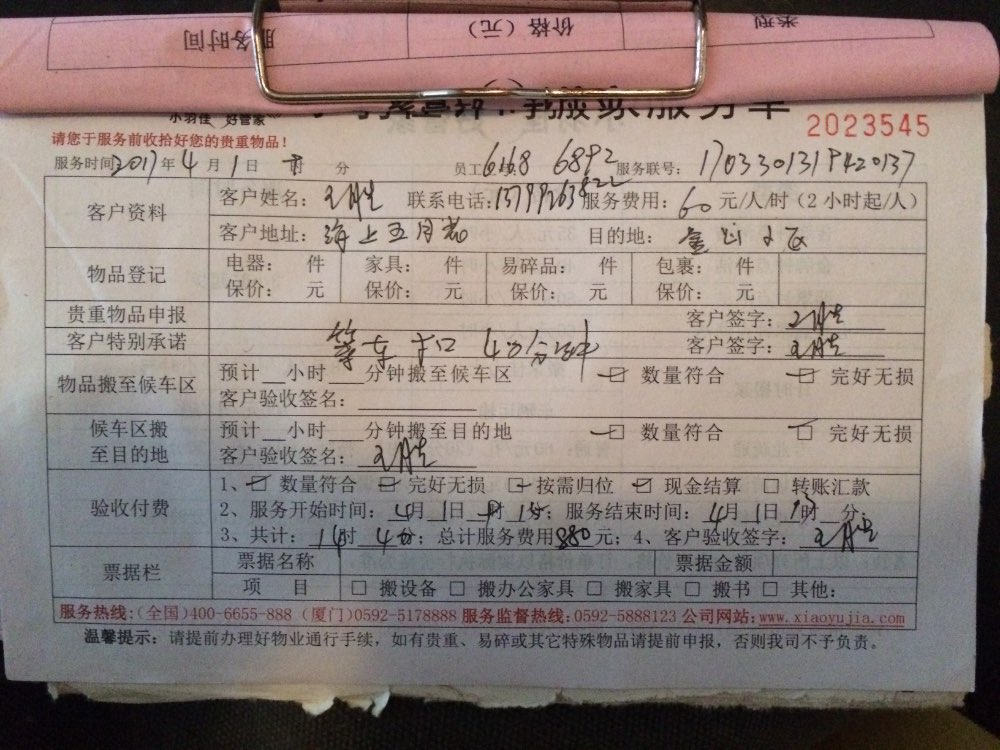 服务时间 价格（元） 类型
小羽佳 好管家 搬家服务单
2023545
请您于服务前收拾好您的贵重物品！
服务时间2017年4月1日 分 员工 6168 6892 服务联号：
客户资料 客户姓名： 联系电话： 服务费用：60元/人/时（2小时起/人）
客户地址：海上五月花 目的地：金山小区
物品登记 电器： 件 家具： 件 易碎品： 件 包裹： 件
保价： 元 保价： 元 保价： 元 保价： 元
贵重物品申报 客户签字：
客户特别承诺 等车 40分钟 客户签字：
物品搬至候车区 预计__小时___分钟搬至候车区 数量符合 完好无损
客户验收签名：
候车区搬至目的地 预计__小时___分钟搬至目的地 数量符合 完好无损
客户验收签名：
验收付费 1、数量符合 完好无损 按需归位 现金结算 □ 转账汇款
2、服务开始时间：4月1日 时 分；服务结束时间：4月1日 时 分；
3、共计：14时 4分；总计服务费用880元；4、客户验收签字：
票据栏 票据名称 票据金额
项 目 □ 搬设备 □ 搬办公家具 □ 搬家具 □ 搬书 □ 其他：
服务热线：（全国）400-6655-888（厦门）0592-5178888 服务监督热线：0592-5888123 公司网站：www.xiaoyujia.com
温馨提示：请提前办理好物业通行手续，如有贵重、易碎或其它特殊物品请提前申报，否则我司不予负责。